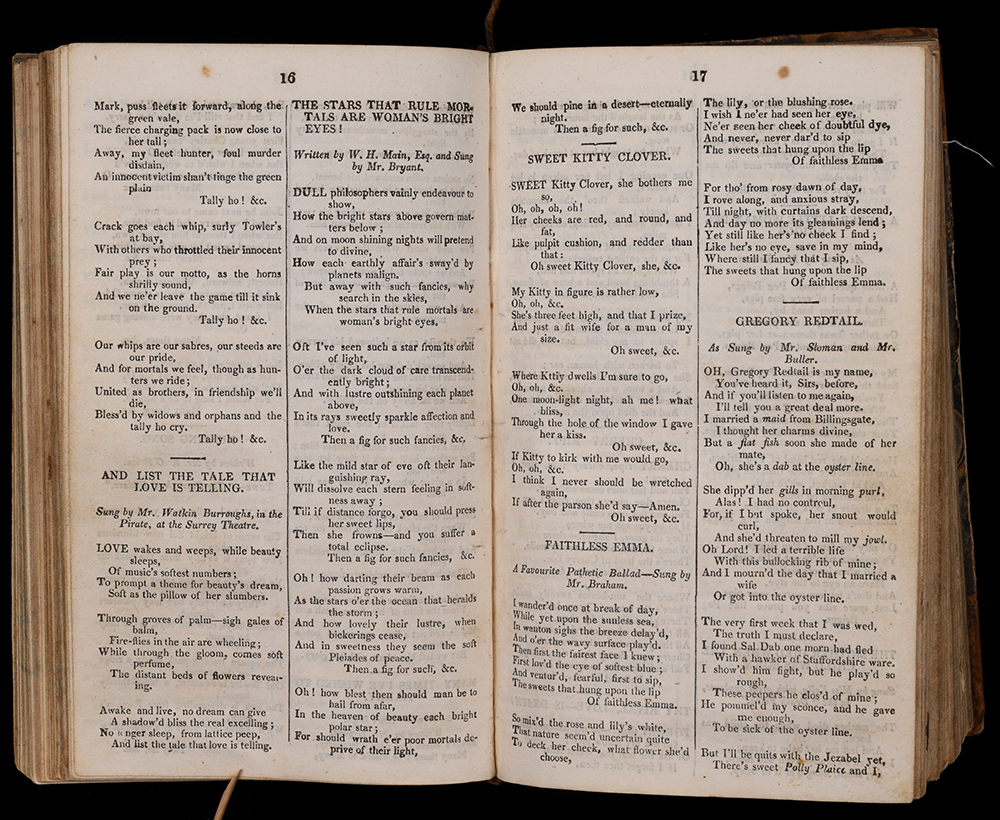 16
Mark, puss fleets it forward, along the
green vale,
The fierce charging pack is now close to
her tail;
Away, my fleet hunter, foul murder
disdain,
An innocent victim shan't tinge the green
plain
Tally ho! &c.
Crack goes each whip, surly Towler's
at bay,
With others who throttled their innocent
prey;
Fair play is our motto, as the horns
shrilly sound,
And we ne'er leave the game till it sink
on the ground.
Tally ho! &c.
Our whips are our sabres, our steeds are
our pride,
And for mortals we feel, though as hun-
ters we ride;
United as brothers, in friendship we'll
die,
Bless'd by widows and orphans and the
tally ho cry.
Tally ho! &c.
AND LIST THE TALE THAT
LOVE IS TELLING.
Sung by Mr. Watkin Burroughs, in the
Pirate, at the Surrey Theatre.
LOVE wakes and weeps, while beauty
sleeps,
Of music's softest numbers;
To prompt a theme for beauty's dream,
Soft as the pillow of her slumbers.
Through groves of palm—sigh gales of
balm,
Fire-flies in the air are wheeling;
While through the gloom, comes soft
perfume,
The distant beds of flowers reveal-
ing.
Awake and live, no dream can give
A shadow'd bliss the real excelling;
No longer sleep, from lattice peep,
And list the tale that love is telling.
THE STARS THAT RULE MOR-
TALS ARE WOMAN'S BRIGHT
EYES!
Written by W. H. Main, Esq. and Sung
by Mr. Bryant.
DULL philosophers vainly endeavour to
show,
How the bright stars above govern mat-
ters below;
And on moon shining nights will pretend
to divine,
How each earthly affair's sway'd by
planets malign.
But away with such fancies, why
search in the skies,
When the stars that rule mortals are
woman's bright eyes.
Oft I've seen such a star from its orbit
of light,
O'er the dark cloud of care transcend-
ently bright;
And with lustre outshining each planet
above,
In its rays sweetly sparkle affection and
love.
Then a fig for such fancies, &c.
Like the mild star of eve oft their lan-
guishing ray,
Will dissolve each stern feeling in soft-
ness away;
Till if distance forgo, you should press
her sweet lips,
Then she frowns—and you suffer a
total eclipse.
Then a fig for such fancies, &c.
Oh! how darting their beam as each
passion grows warm,
As the stars o'er the ocean that heralds
the storm;
And how lovely their lustre, when
bickerings cease,
And in sweetness they seem the soft
Pleiades of peace.
Then a fig for such, &c.
Oh! how blest then should man be to
hail from afar,
In the heaven of beauty each bright
polar star;
For should wrath e'er poor mortals de-
prive of their light,
17
We should pine in a desert—eternally
night.
Then a fig for such, &c.
SWEET KITTY CLOVER.
SWEET Kitty Clover, she bothers me
so,
Oh, oh, oh, oh!
Her cheeks are red, and round, and
fat,
Like pulpit cushion, and redder than
that:
Oh sweet Kitty Clover, she, &c.
My Kitty in figure is rather low,
Oh, oh, &c.
She's three feet high, and that I prize,
And just a fit wife for a man of my
size.
Oh sweet, &c.
Where Kttiy dwells I'm sure to go,
Oh, oh, &c.
One moon-light night, ah me! what
bliss,
Through the hole of the window I gave
her a kiss.
Oh sweet, &c.
If Kitty to kirk with me would go,
Oh, oh, &c.
I think I never should be wretched
again,
If after the parson she'd say—Amen.
Oh sweet, &c.
FAITHLESS EMMA.
A Favourite Pathetic Ballad—Sung by
Mr. Braham.
I wander'd once at break of day,
While yet upon the sunless sea,
In wanton sighs the breeze delay'd,
And o'er the wavy surface play'd.
Then first the fairest face I knew;
First lov'd the eye of softest blue;
And ventur'd, fearful, first to sip,
The sweets that hung upon the lip
Of faithless Emma.
So mix'd the rose and lily's white,
That nature seem'd uncertain quite
To deck her cheek, what flower she'd
choose,
The lily, or the blushing rose.
I wish I ne'er had seen her eye,
Ne'er seen her cheek of doubtful dye,
And never, never dar'd to sip
The sweets that hung upon the lip
Of faithless Emma
For tho' from rosy dawn of day,
I rove along, and anxious stray,
Till night, with curtains dark descend,
And day no more its gleamings lend;
Yet still like her's no cheek I find;
Like her's no eye, save in my mind,
Where still I fancy that I sip,
The sweets that hung upon the lip
Of faithless Emma.
GREGORY REDTAIL.
As Sung by Mr. Sloman and Mr.
Buller.
OH, Gregory Redtail is my name,
You've heard it, Sirs, before,
And if you'll listen to me again,
I'll tell you a great deal more.
I married a maid from Billingsgate,
I thought her charms divine,
But a flat fish soon she made of her
mate,
Oh, she's a dab at the oyster line.
She dipp'd her gills in morning purl,
Alas! I had no controul,
For, if I but spoke, her snout would
curl,
And she'd threaten to mill my jowl.
Oh Lord! I led a terrible life
With this bullocking rib of mine;
And I mourn'd the day that I married a
wife
Or got into the oyster line.
The very first week that I was wed,
The truth I must declare,
I found Sal Dab one morn had fled
With a hawker of Staffordshire ware.
I show'd him fight, but he play'd so
rough,
These peepers he clos'd of mine;
He pommel'd my sconce, and he gave
me enough,
To be sick of the oyster line.
But I'll be quits with the Jezabel yet,
There's sweet Polly Plaice and I,